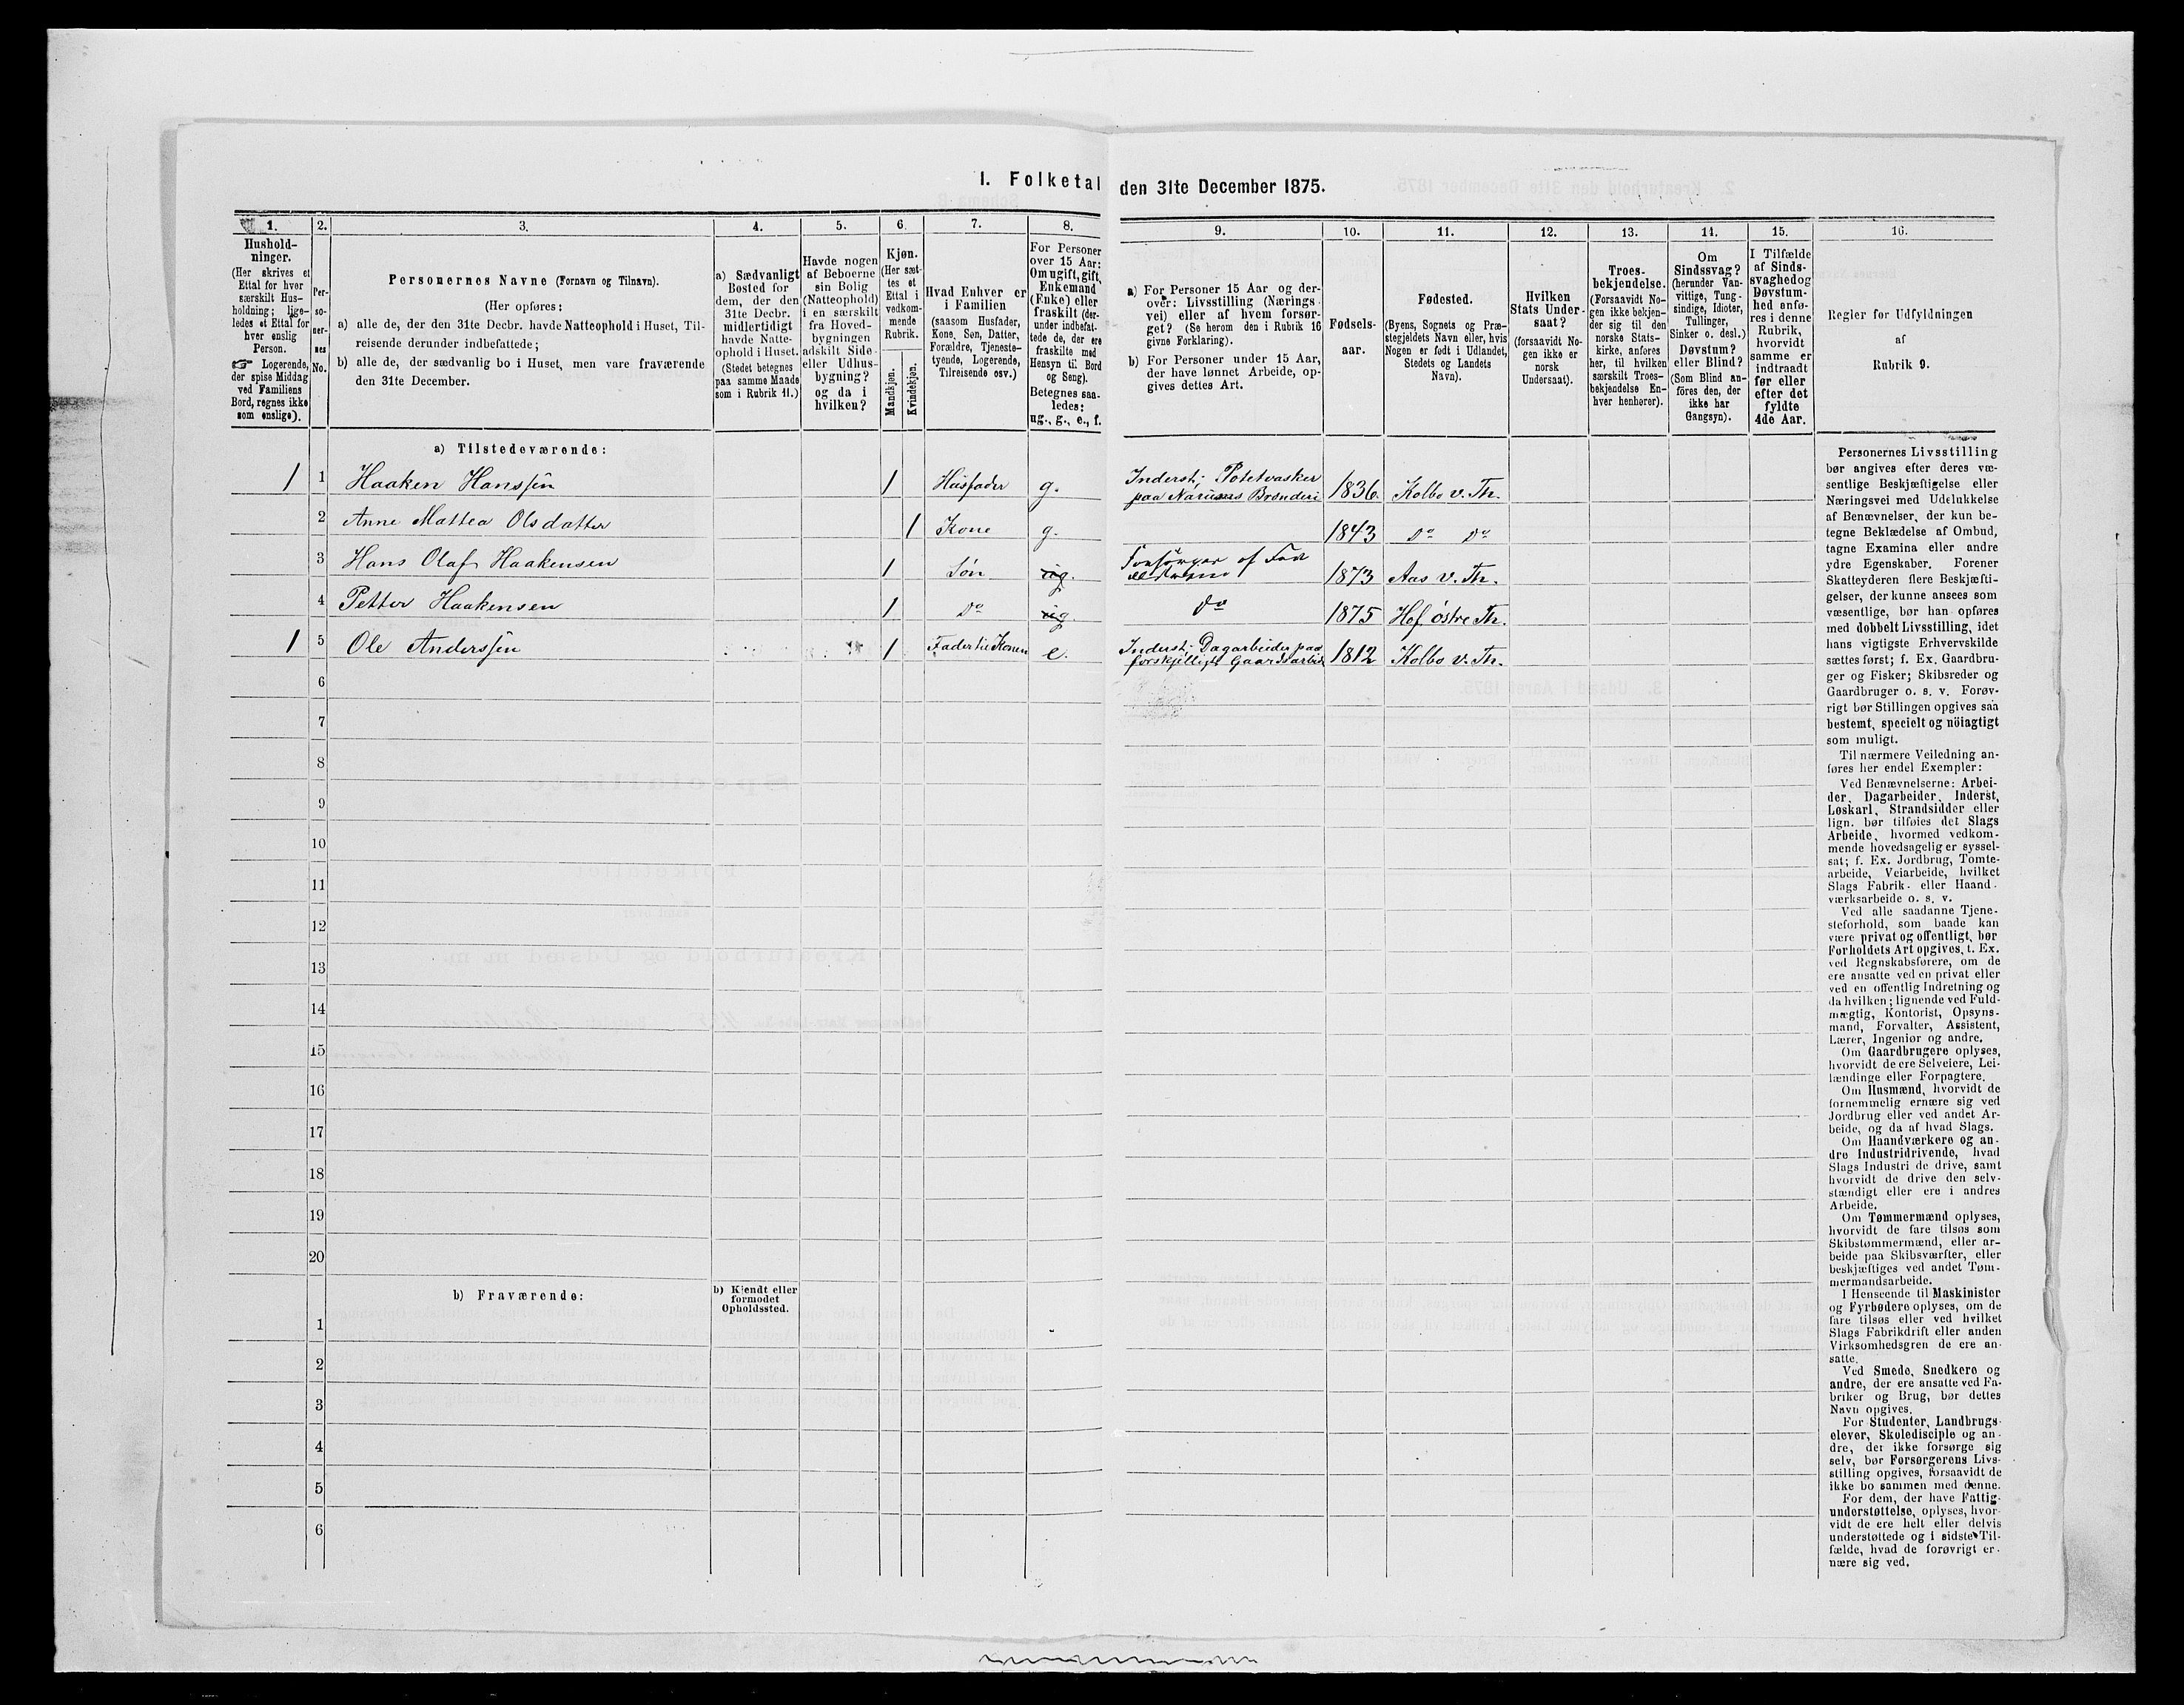 I. Folketal den 31te December 1875.
1.
Hushold-
ninger.
(Her skrives et
Ettal for hver
særskilt Hus-
holdning; lige-
ledes et Ettal for
hver enslig
Person.
☞ Logerende,
der spise Middag
ved Familiens
Bord, regnes ikke
som enslige).
2.
Per-
so-
ner-
nes
No.
3.
Personernes Navne (Fornavn og Tilnavn).
(Her opføres:
a) alle de, der den 31te Decbr. havde Natteophold i Huset, Til-
reisende derunder indbefattede;
b) alle de, der sædvanlig bo i Huset, men vare fraværende
den 31te December.
4.
a) Sædvanligt
Bosted for
dem, der den
31te Decbr.
midlertidigt
havde Natte-
ophold i Huset.
(Stedet betegnes
paa samme Maade
som i Rubrik 11.)
5.
Havde nogen
af Beboerne
sin Bolig
(Natteophold)
i en særskilt
fra Hoved-
bygningen
adskilt Side-
eller Udhus-
bygning?
og da i
hvilken?
6.
Kjøn.
(Her sæt-
tes et
Ettal i
vedkom-
mende
Rubrik.
Mandkjøn.
Kvindekjøn.
7.
Hvad Enhver er
i Familien
(saasom Husfader,
Kone, Søn, Datter,
Forældre, Tjeneste-
tyende, Logerende,
Tilreisende osv.)
8.
For Personer
over 15 Aar:
Om ugift, gift,
Enkemand
(Enke) eller
fraskilt (der-
under indbefat-
tede de, der ere
fraskilte med
Hensyn til Bord
og Seng).
Betegnes saa-
ledes:
ug., g., e., f.
9.
a) For Personer 15 Aar og der-
over: Livsstilling (Nærings-
vei) eller af hvem forsør-
get? (Se herom den i Rubrik 16
givne Forklaring).
b) For Personer under 15 Aar,
der have lønnet Arbeide, op-
gives dettes Art.
10.
Fødsels-
aar.
11.
Fødested.
(Byens, Sognets og Præ-
stegjeldets Navn eller, hvis
Nogen er født i Udlandet,
Stedets og Landets
Navn).
12.
Hvilken
Stats Under-
saat?
(forsaavidt No-
gen ikke er
norsk
Undersaat).
13.
Troes-
bekjendelse.
(Forsaavidt No-
gen ikke bekjen-
der sig til den
norske Stats-
kirke, anføres
her, til hvilken
særskilt Troes-
bekjendelse En-
hver henhører).
14.
Om
Sindssvag?
(herunder Van-
vittige, Tung-
sindige, Idioter,
Tullinger,
Sinker o. desl.)
Døvstum?
eller Blind?
(Som Blind an-
føres den, der
ikke har
Gangsyn).
15.
I Tilfælde
af Sinds-
svaghed og
Døvstum-
hed anfø-
res i denne
Rubrik,
hvorvidt
samme er
indtraadt
før eller
efter det
fyldte
4de Aar.
16.
Regler for Udfyldningen
af
Rubrik 9.
a) Tilstedeværende:
1 1 Haaken Hanssen 1 Husfader g. Inderst; Potetvasker
paa Brænderi 1836. Kolbo v. Th.
2 Anne Mattea Olsdatter 1 Kone g. 1843 do do
3 Hans Olaf Haakensen 1 Søn ug. Forsørges af 1873 Aas v. Th.
4 Petter Haakensen 1 do ug do 1875 Hof østre Th.
1 5 Ole Anderssen 1 Fader til Konen e. Inderst; Dagarbeider paa
forskjelligt Gaardsarbeid 1812 Kolbo v. Th.
6
7
8
9
10
11
12
13
14
15
16
17
18
19
20
b) Fraværende:
b) Kjendt eller
formodet
Opholdssted.
1
2
3
4
5
6
Personernes Livsstilling
bør angives efter deres væ-
sentlige Beskjæftigelse eller
Næringsvei med Udelukkelse
af Benævnelser, der kun be-
tegne Beklædelse af Ombud,
tagne Examina eller andre
ydre Egenskaber. Forener
Skatteyderen flere Beskjæfti-
gelser, der kunne ansees som
væsentlige, bør han opføres
med dobbelt Livsstilling, idet
hans vigtigste Erhvervskilde
sættes først; f. Ex. Gaardbru-
ger og Fisker; Skibsreder og
Gaardbruger o. s. v. Forøv-
rigt bør Stillingen opgives saa
bestemt, specielt og nöiagtigt
som muligt.
Til nærmere Veiledning an-
føres her endel Exempler:
Ved Benævnelserne: Arbei-
der, Dagarbeider, Inderst,
Løskarl, Strandsidder eller
lign. bør tilføies det Slags
Arbeide, hvormed vedkom-
mende hovedsagelig er syssel-
sat; f. Ex. Jordbrug, Tomte-
arbeide, Veiarbeide, hvilket
Slags Fabrik- eller Haand-
værksarbeide o. s. v.
Ved alle saadanne Tjene-
steforhold, som baade kan
være privat og offentligt, bør
Forholdets Art opgives, t. Ex.
ved Regnskabsførere, om de
ere ansatte ved en privat eller
ved en offentlig Indretning og
da hvilken; lignende ved Fuld-
mægtig, Kontorist, Opsyns-
mand, Forvalter, Assistent,
Lærer, Ingeniør og andre.
Om Gaardbrugere oplyses,
hvorvidt de ere Selveiere, Lei-
lændinge eller Forpagtere.
Om Husmænd, hvorvidt de
fornemmelig ernære sig ved
Jordbrug eller ved andet Ar-
beide, og da af hvad Slags.
Om Haandværkere og an-
dre Industridrivende, hvad
Slags Industri de drive, samt
hvorvidt de drive den selv-
stændigt eller ere i andres
Arbeide.
Om Tømmermænd oplyses,
hvorvidt de fare tilsøs som
Skibstømmermænd, eller ar-
beide paa Skibsværfter, eller
beskjæftiges ved andet Tøm-
mermandsarbeide.
I Henseende til Maskinister
og Fyrbødere oplyses, om de
fare tilsøs eller ved hvilket
Slags Fabrikdrift eller anden
Virksomhedsgren de ere an-
satte.
Ved Smede, Snedkere og
andre, der ere ansatte ved Fa-
briker og Brug, bør dettes
Navn opgives.
For Studenter, Landbrugs-
elever, Skoledisciple og an-
dre, der ikke forsørge sig
selv, bør Forsørgerens Livs-
stilling opgives, forsaavidt de
ikke bo sammen med denne.
For dem, der have Fattig-
understøttelse, oplyses, hvor-
vidt de ere helt eller delvis
understøttede og i sidste Til-
fælde, hvad de forøvrigt er-
nære sig ved.